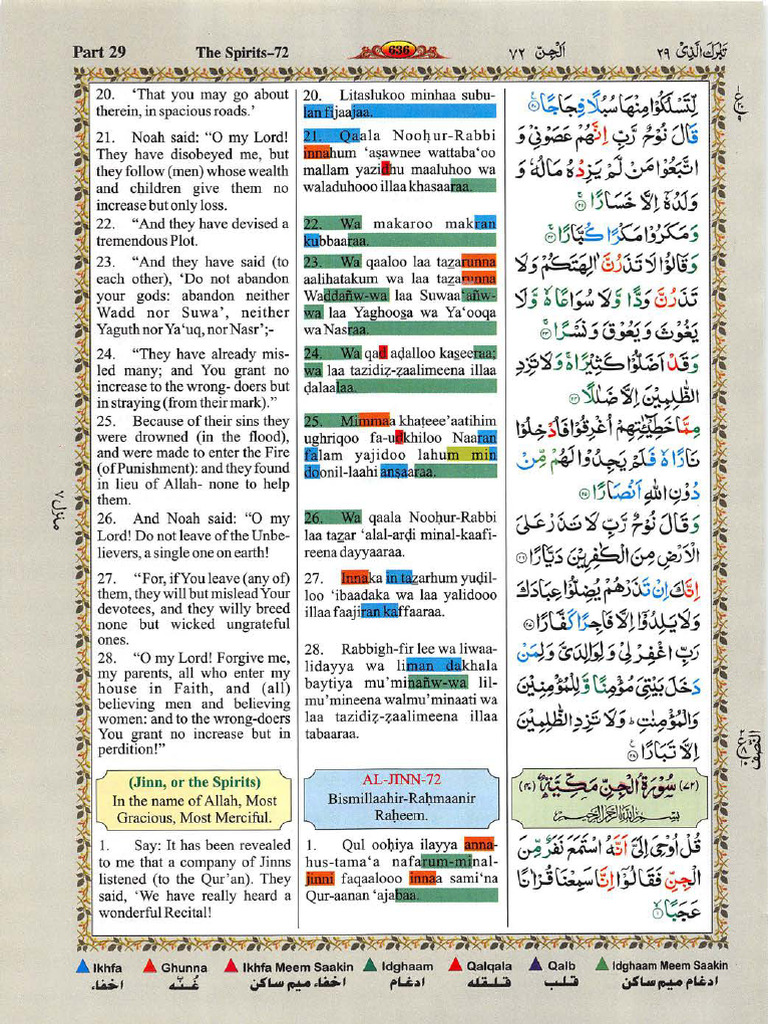 Part 29
The Spirits–72
636
٧٢ اَلْجِنّ
تَبٰرَكَ الَّذِیْ ٢٩
20. ‘That you may go about
therein, in spacious roads.’
21. Noah said: “O my Lord!
They have disobeyed me, but
they follow (men) whose wealth
and children give them no
increase but only loss.
22. “And they have devised a
tremendous Plot.
23. “And they have said (to
each other), ‘Do not abandon
your gods: abandon neither
Wadd nor Suwa‘, neither
Yaguth nor Ya‘uq, nor Nasr’;-
24. “They have already mis-
led many; and You grant no
increase to the wrong- doers but
in straying (from their mark).”
25. Because of their sins they
were drowned (in the flood),
and were made to enter the Fire
(of Punishment): and they found
in lieu of Allah- none to help
them.
26. And Noah said: “O my
Lord! Do not leave of the Unbe-
lievers, a single one on earth!
27. “For, if You leave (any of)
them, they will but mislead Your
devotees, and they willy breed
none but wicked ungrateful
ones.
28. “O my Lord! Forgive me,
my parents, all who enter my
house in Faith, and (all)
believing men and believing
women: and to the wrong-doers
You grant no increase but in
perdition!”
(Jinn, or the Spirits)
In the name of Allah, Most
Gracious, Most Merciful.
1. Say: It has been revealed
to me that a company of Jinns
listened (to the Qur’an). They
said, ‘We have really heard a
wonderful Recital!
20. Litaslukoo minhaa subu-
lan fijaajaa.
21. Qaala Nooḥur-Rabbi
innahum ‘aṣawnee wattaba‘oo
mallam yazidhu maaluhoo wa
waladuhooo illaa khasaaraa.
22. Wa makaroo makran
kubbaaraa.
23. Wa qaaloo laa tazarunna
aalihatakum wa laa tazarunna
Waddañw-wa laa Suwaa‘añw-
wa laa Yaghooṣa wa Ya‘ooqa
wa Nasraa.
24. Wa qad aḍalloo kaṣeeraa;
wa laa tazidiẓ-ẓaalimeena illaa
ḍalaalaa.
25. Mimmaa khaṭeee’aatihim
ughriqoo fa-udkhiloo Naaran
falam yajidoo lahum min
doonil-laahi anṣaaraa.
26. Wa qaala Nooḥur-Rabbi
laa tazar ‘alal-arḍi minal-kaafi-
reena dayyaaraa.
27. Innaka in tazarhum yuḍil-
loo ‘ibaadaka wa laa yalidooo
illaa faajiran kaffaaraa.
28. Rabbigh-fir lee wa liwaa-
lidayya wa liman dakhala
baytiya mu’minañw-wa lil-
mu’mineena walmu’minaati wa
laa tazidiẓ-ẓaalimeena illaa
tabaaraa.
AL-JINN-72
Bismillaahir-Raḥmaanir
Raḥeem.
1. Qul ooḥiya ilayya anna-
hus-tama‘a nafarum-minal-
jinni faqaalooo innaa sami‘na
Qur-aanan ‘ajabaa.
لِّتَسْلُكُوْا مِنْهَا سُبُلًا فِجَاجًا ۟
قَالَ نُوْحٌ رَّبِّ اِنَّهُمْ عَصَوْنِیْ وَ
اتَّبَعُوْا مَنْ لَّمْ یَزِدْهُ مَالُهٗ وَ
وَلَدُهٗۤ اِلَّا خَسَارًا ۟
وَ مَكَرُوْا مَكْرًا كُبَّارًا ۟
وَقَالُوْا لَا تَذَرُنَّ اٰلِهَتَكُمْ وَلَا
تَذَرُنَّ وَدًّا وَّلَا سُوَاعًا ۙ۬ وَّلَا
یَغُوْثَ وَیَعُوْقَ وَنَسْرًا ۟
وَقَدْ اَضَلُّوْا كَثِیْرًا ۚ۬ وَلَا تَزِدِ
الظّٰلِمِیْنَ اِلَّا ضَلٰلًا ۟
مِمَّا خَطِیْٓـٰٔتِهِمْ اُغْرِقُوْا فَاُدْخِلُوْا
نَارًا ۙ۬ فَلَمْ یَجِدُوْا لَهُمْ مِّنْ
دُوْنِ اللّٰهِ اَنْصَارًا ۟
وَقَالَ نُوْحٌ رَّبِّ لَا تَذَرْ عَلَی
الْاَرْضِ مِنَ الْكٰفِرِیْنَ دَیَّارًا ۟
اِنَّكَ اِنْ تَذَرْهُمْ یُضِلُّوْا عِبَادَكَ
وَلَا یَلِدُوْۤا اِلَّا فَاجِرًا كَفَّارًا ۟
رَبِّ اغْفِرْ لِیْ وَلِوَالِدَیَّ وَلِمَنْ
دَخَلَ بَیْتِیَ مُؤْمِنًا وَّلِلْمُؤْمِنِیْنَ
وَالْمُؤْمِنٰتِ ؕ وَلَا تَزِدِ الظّٰلِمِیْنَ
اِلَّا تَبَارًا ۟
(٧٢) سُوْرَةُ الْجِنِّ مَكِّیَّةٌ (٤٠)
بِسْمِ اللّٰهِ الرَّحْمٰنِ الرَّحِیْمِ
قُلْ اُوْحِیَ اِلَیَّ اَنَّهُ اسْتَمَعَ نَفَرٌ مِّنَ
الْجِنِّ فَقَالُوْۤا اِنَّا سَمِعْنَا قُرْاٰنًا
عَجَبًا ۟
منزل ٧
النصف
Ikhfa
Ghunna
Ikhfa Meem Saakin
Idghaam
Qalqala
Qalb
Idghaam Meem Saakin
اخفاء
غُنّه
اخفاء ميم ساكن
ادغام
قلقله
قلب
ادغام ميم ساكن